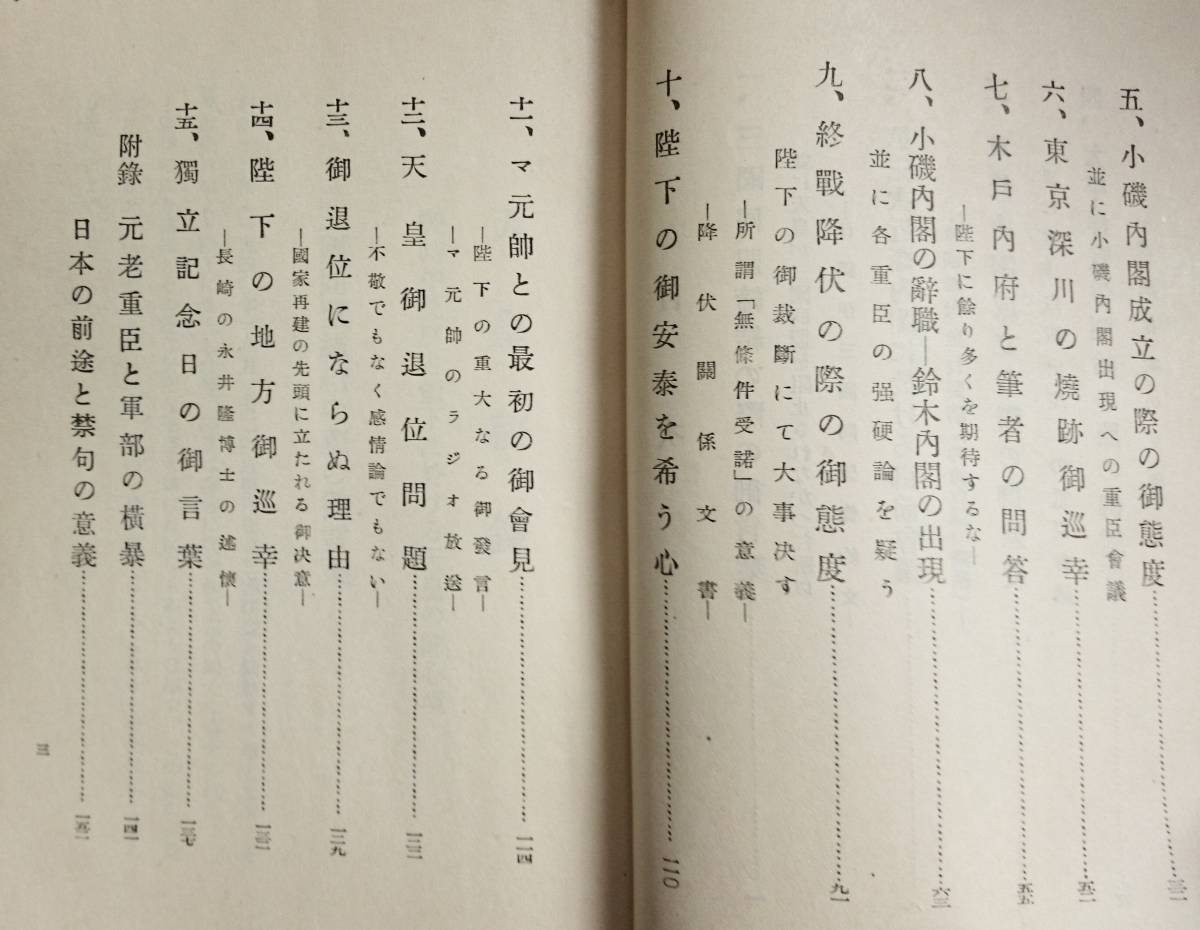 五、小磯內閣成立の際の御態度
並に小磯內閣出現への重臣會議
六、東京深川の燒跡御巡幸
七、木戶內府と筆者の問答
―陛下に餘り多くを期待するな―
八、小磯內閣の辭職―鈴木內閣の出現
六三
並に各重臣の强硬論を疑う
九、終戰降伏の際の御態度
九一
陛下の御裁斷にて大事决す
―所謂「無條件受諾」の意義―
―降伏關係文書―
十、陛下の御安泰を希う心
一一〇
十一、マ元帥との最初の御會見
一一四
―陛下の重大なる御發言―
―マ元帥のラジオ放送―
十二、天皇御退位問題
―不敬でもなく感情論でもない―
十三、御退位にならぬ理由
一二九
―國家再建の先頭に立たれる御决意―
十四、陛下の地方御巡幸
―長崎の永井隆博士の述懷―
十五、獨立記念日の御言葉
一三七
附錄 元老重臣と軍部の橫暴
一四一
日本の前途と禁句の意義
一五一
三